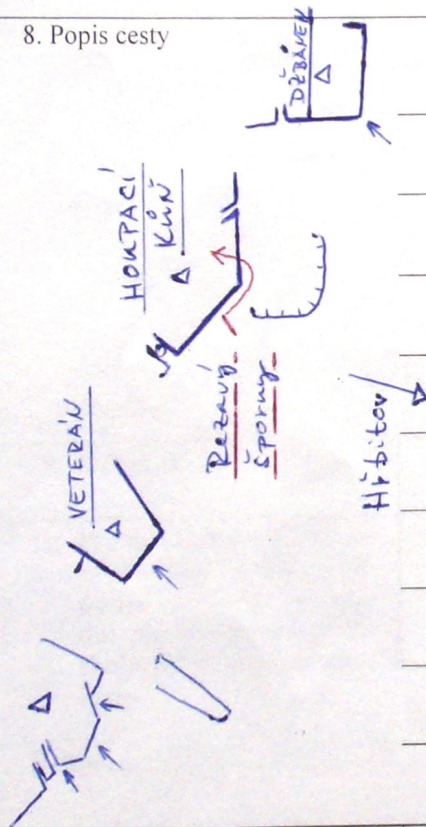 8. Popis cesty
DŽBÁNEK
HOUPACÍ
KŮŇ
Rezavý
Šporny
VETERÁN
Hřbitov